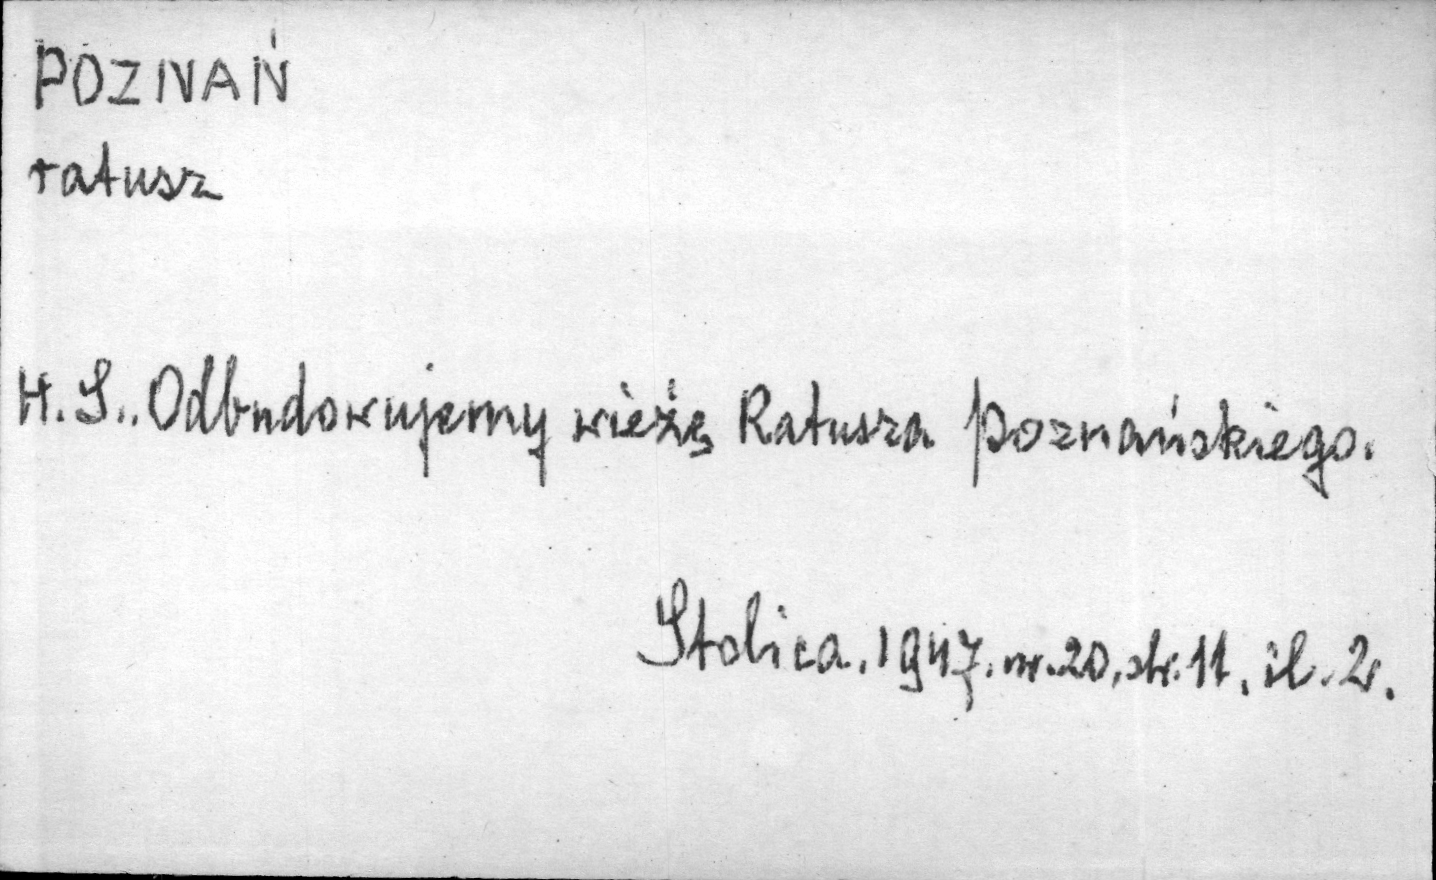 POZNAŃ
ratusz
H. S.. Odbudowujemy wieżę Ratusza Poznańskiego.
Stolica. 1947. nr. 20, str. 11, il. 2.